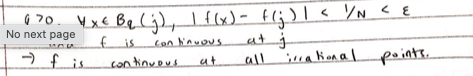 δ > 0. ∀x ∈ Bδ(j), |f(x) - f(j)| < 1/N < ε
No next page
f is continuous at j
→ f is continuous at all irrational points.